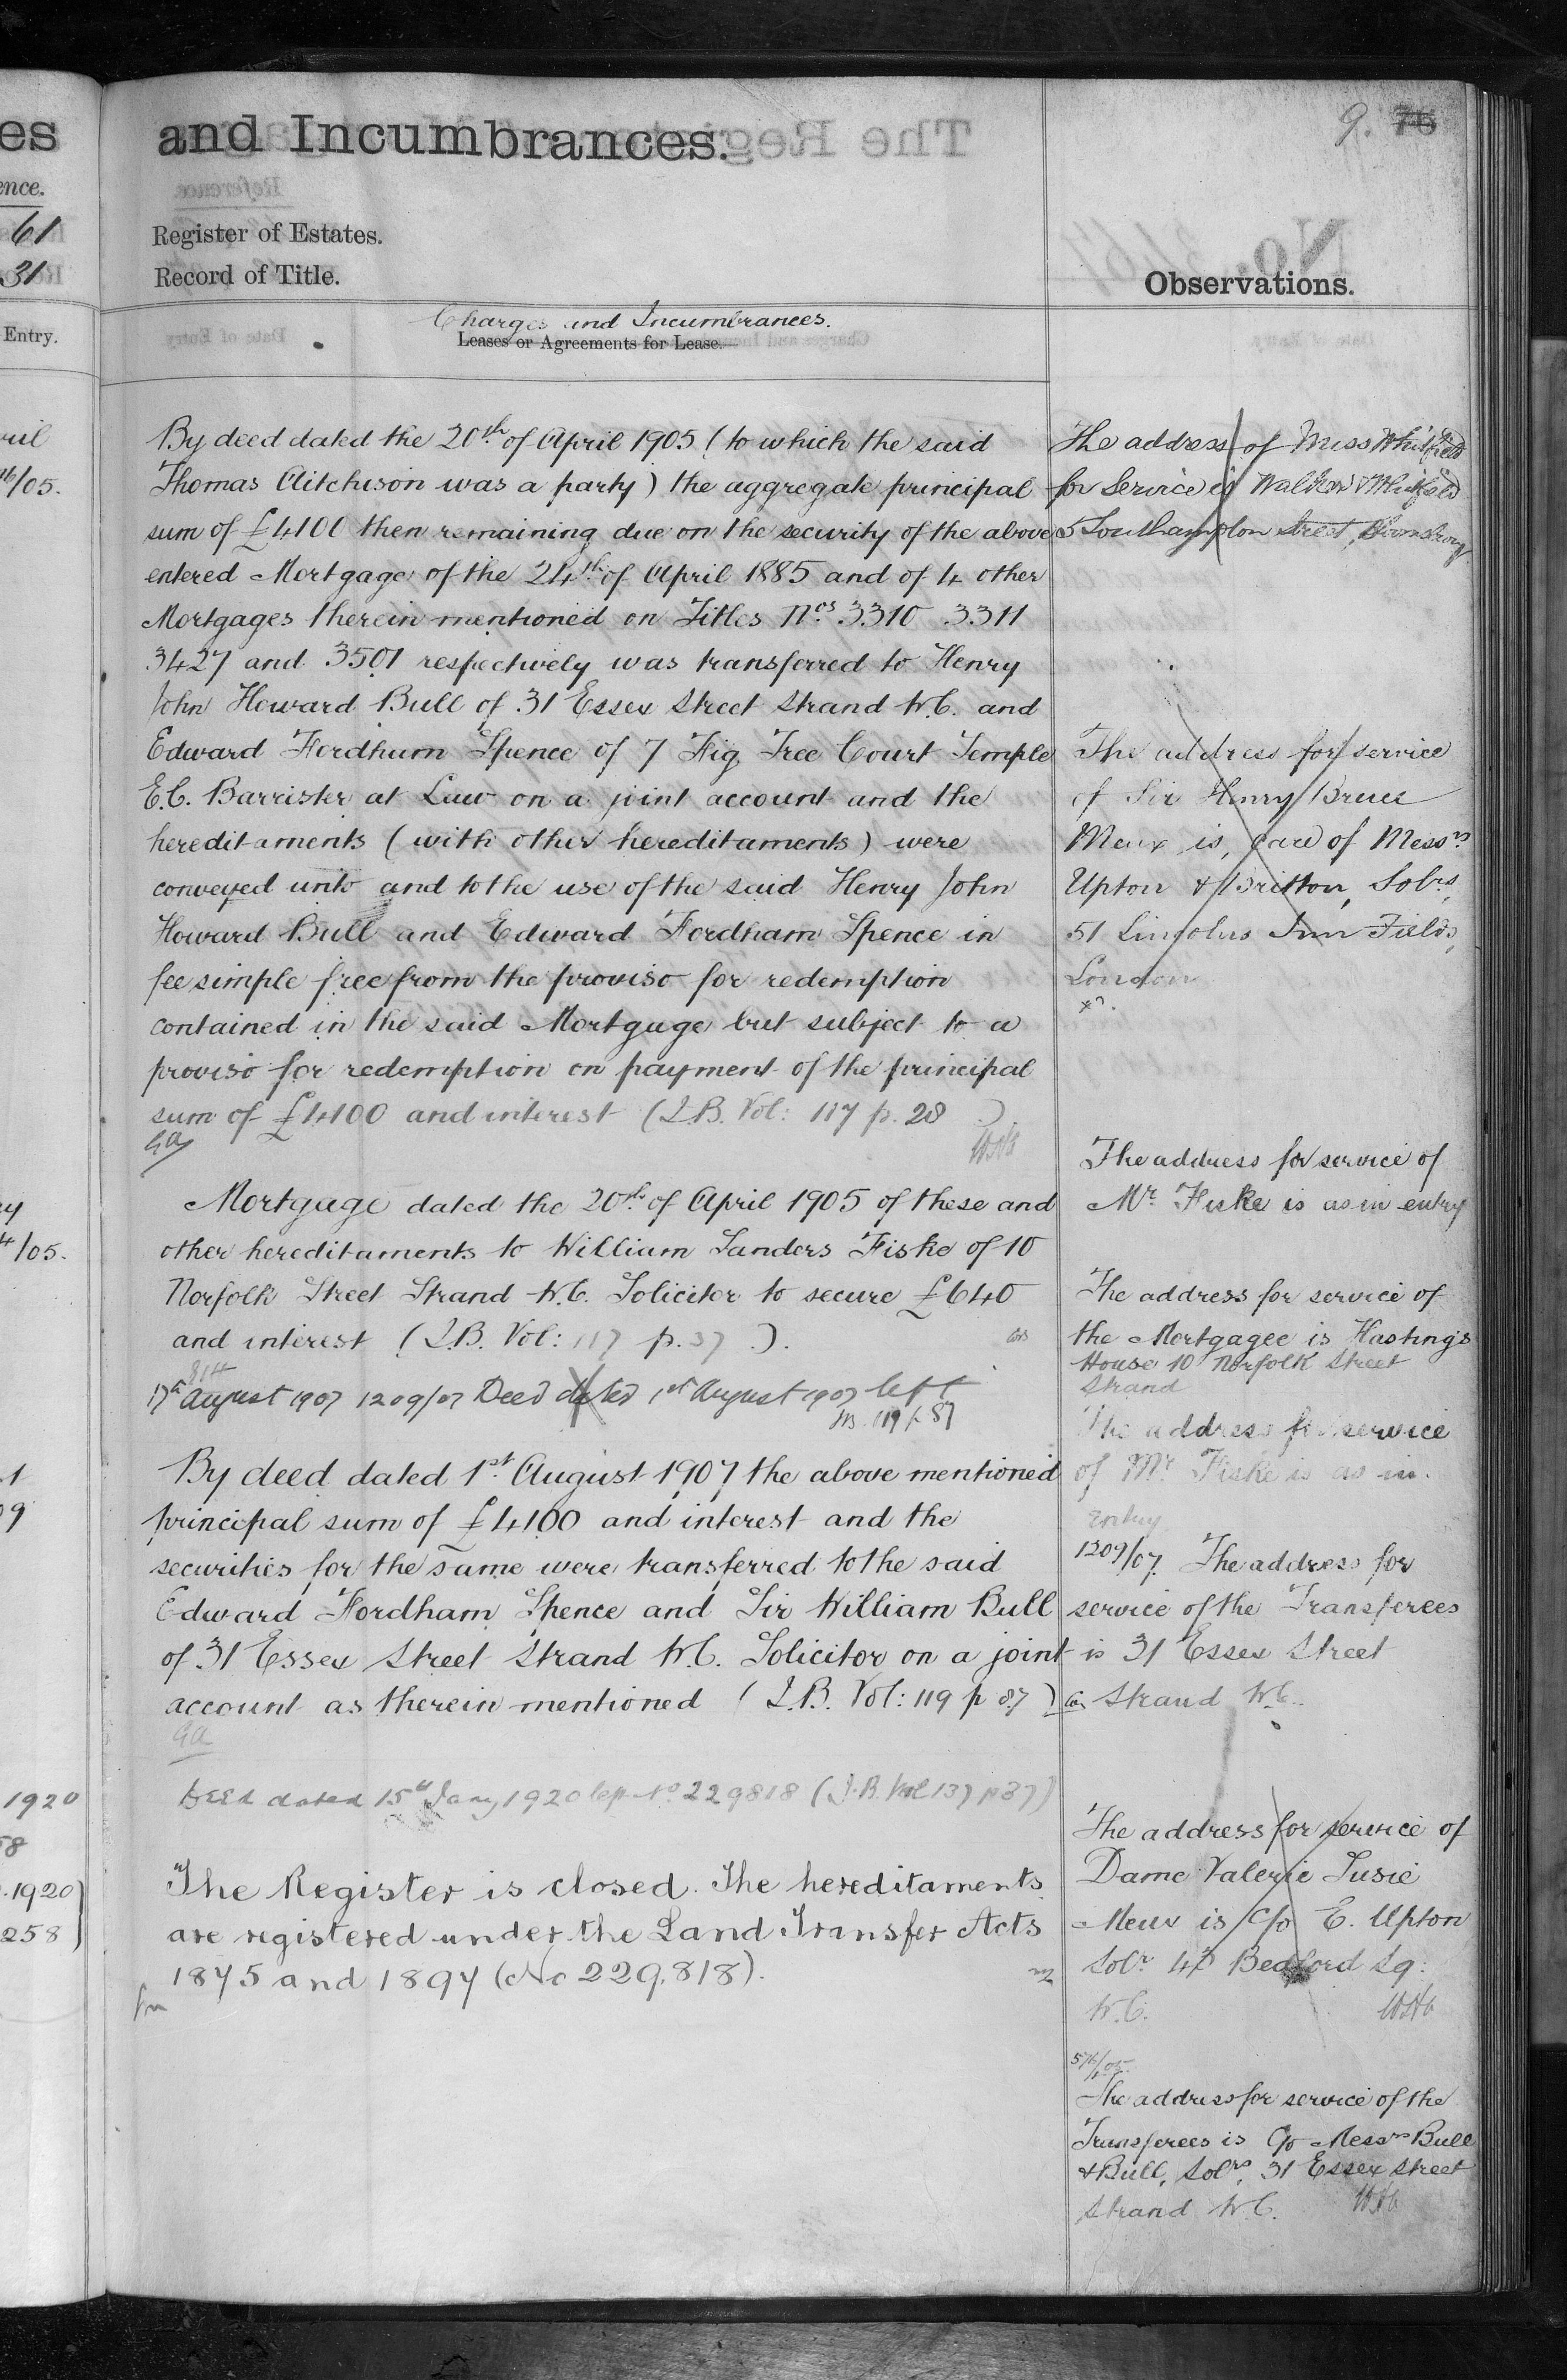 es
and Incumbrances.
9. 76
ence.
61
31
Register of Estates.
Record of Title.
Observations.
Entry.
Charges and Incumbrances.
Leases or Agreements for Lease.
By deed dated the 20th of April 1905 (to which the said
Thomas Aitchison was a party) the aggregate principal
sum of £4100 then remaining due on the security of the above
entered Mortgage of the 24th of April 1885 and of 4 other
Mortgages therein mentioned on Titles Nos. 3310 3311
3427 and 3501 respectively was transferred to Henry
John Howard Bull of 31 Essex Street Strand W.C. and
Edward Fordham Spence of 7 Fig Tree Court Temple
E.C. Barrister at Law on a joint account and the
hereditaments (with other hereditaments) were
conveyed unto and to the use of the said Henry John
Howard Bull and Edward Fordham Spence in
fee simple free from the proviso for redemption
contained in the said Mortgage but subject to a
proviso for redemption on payment of the principal
sum of £4100 and interest (I.B. Vol: 117 p. 28 )
Mortgage dated the 20th of April 1905 of these and
other hereditaments to William Sanders Fiske of 10
Norfolk Street Strand W.C. Solicitor to secure £640
and interest (I.B. Vol: 117 p. 37 ).
17th August 1907 1209/07 Deed dated 1st August 1907 left
119 p 87
By deed dated 1st August 1907 the above mentioned
principal sum of £4100 and interest and the
securities for the same were transferred to the said
Edward Fordham Spence and Sir William Bull
of 31 Essex Street Strand W.C. Solicitor on a joint
account as therein mentioned (I.B. Vol: 119 p 87)
Ga
Deed dated 15th Jany 1920 No 229818 (I.B. Vol 137 p 37)
The Register is closed. The hereditaments
are registered under the Land Transfer Acts
1875 and 1897 (No 229,818).
The address of Miss Whitfield
for Service is
5 Southampton Street, Bloomsbury
The address for service
of Sir Henry Bruce
Meux is, care of Messrs
Upton & Britton, Solrs,
51 Lincolns Inn Fields,
London
The address for service of
Mr. Fiske is as in entry
The address for service of
the Mortgagee is Hastings
House 10 Norfolk Street
Strand
The address for service
of Mr Fiske is as in
Entry
1209/07. The address for
service of the Transferees
is 31 Essex Street
Strand W.C.
The address for service of
Dame Valerie Susie
Meux is c/o E. Upton
Solr Bedford Sq:
W.C.
The address for service of the
Transferees is c/o Messrs Bull
& Bull, Solrs, 31 Essex Street
Strand W.C.
/05.
/05.
1920
1920)
258)